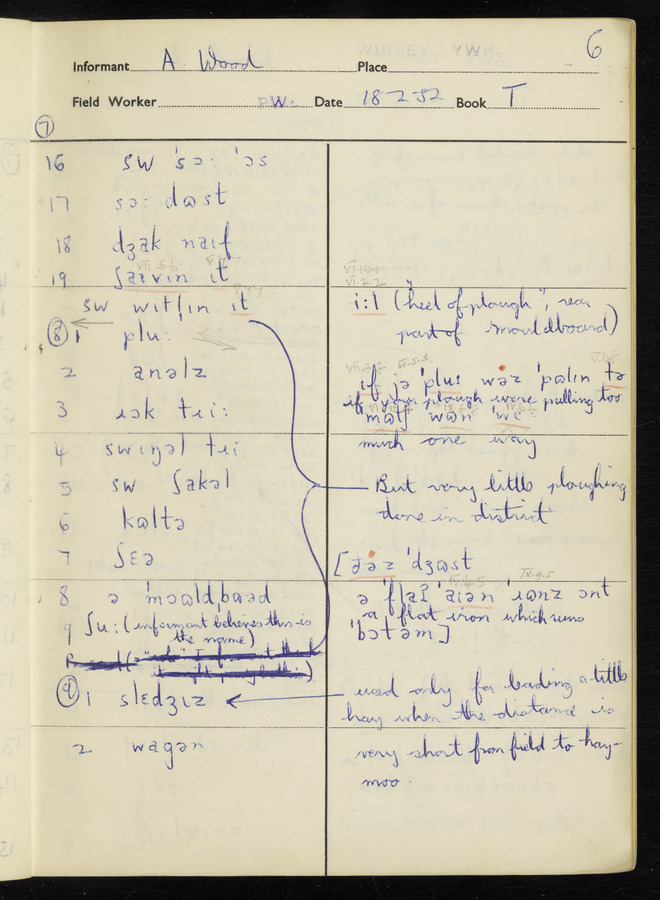 6
Informant A. Wood Place
Field Worker P.W. Date 18-2-52 Book T
⑦
16 sw 'sɔ: 'ɔs
17 sɔ: dʊst
18 dʒak naɪf
19 ʃaɹvɪn ɪt
sw wɪtlɪn ɪt
⑧ 1 plu:
2 anəlz
3 ɹɷk tɹi:
4 swɪŋəl tɹi:
5 sw ʃakəl
6 kɷltə
7 ʃɛə
8 ə 'mɔɷld,bɷəd
9 ʃu: (informant believes this is
the name)
⑨ 1 slɛdʒɪz
2 wagən
i:l ("heel of plough", rear
part of mouldboard)
ɪf jə 'plu: wəz 'pɷlɪn tə
if your plough were pulling too
mɷtʃ wɷn 'wɛ:
much one way
But very little ploughing
done in district
[ðəz 'dʒɷst
ə 'flaʔ 'aɪən 'ɹɷnz ɔnt
a flat iron which runs
'bɔtəm]
used only for leading a little
hay when the distance is
very short from field to hay-
moo